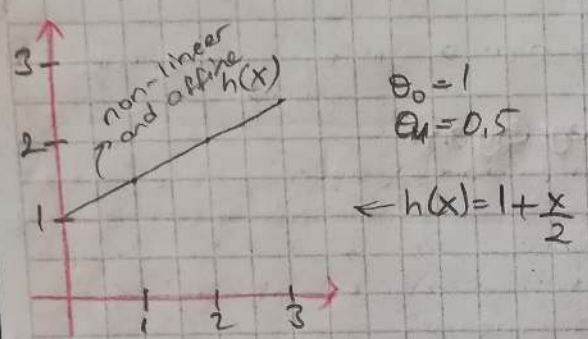 3
2
1
1 2 3
non-linear
and affine
h(x)
θ₀=1
θ₁=0,5
← h(x)=1+x/2